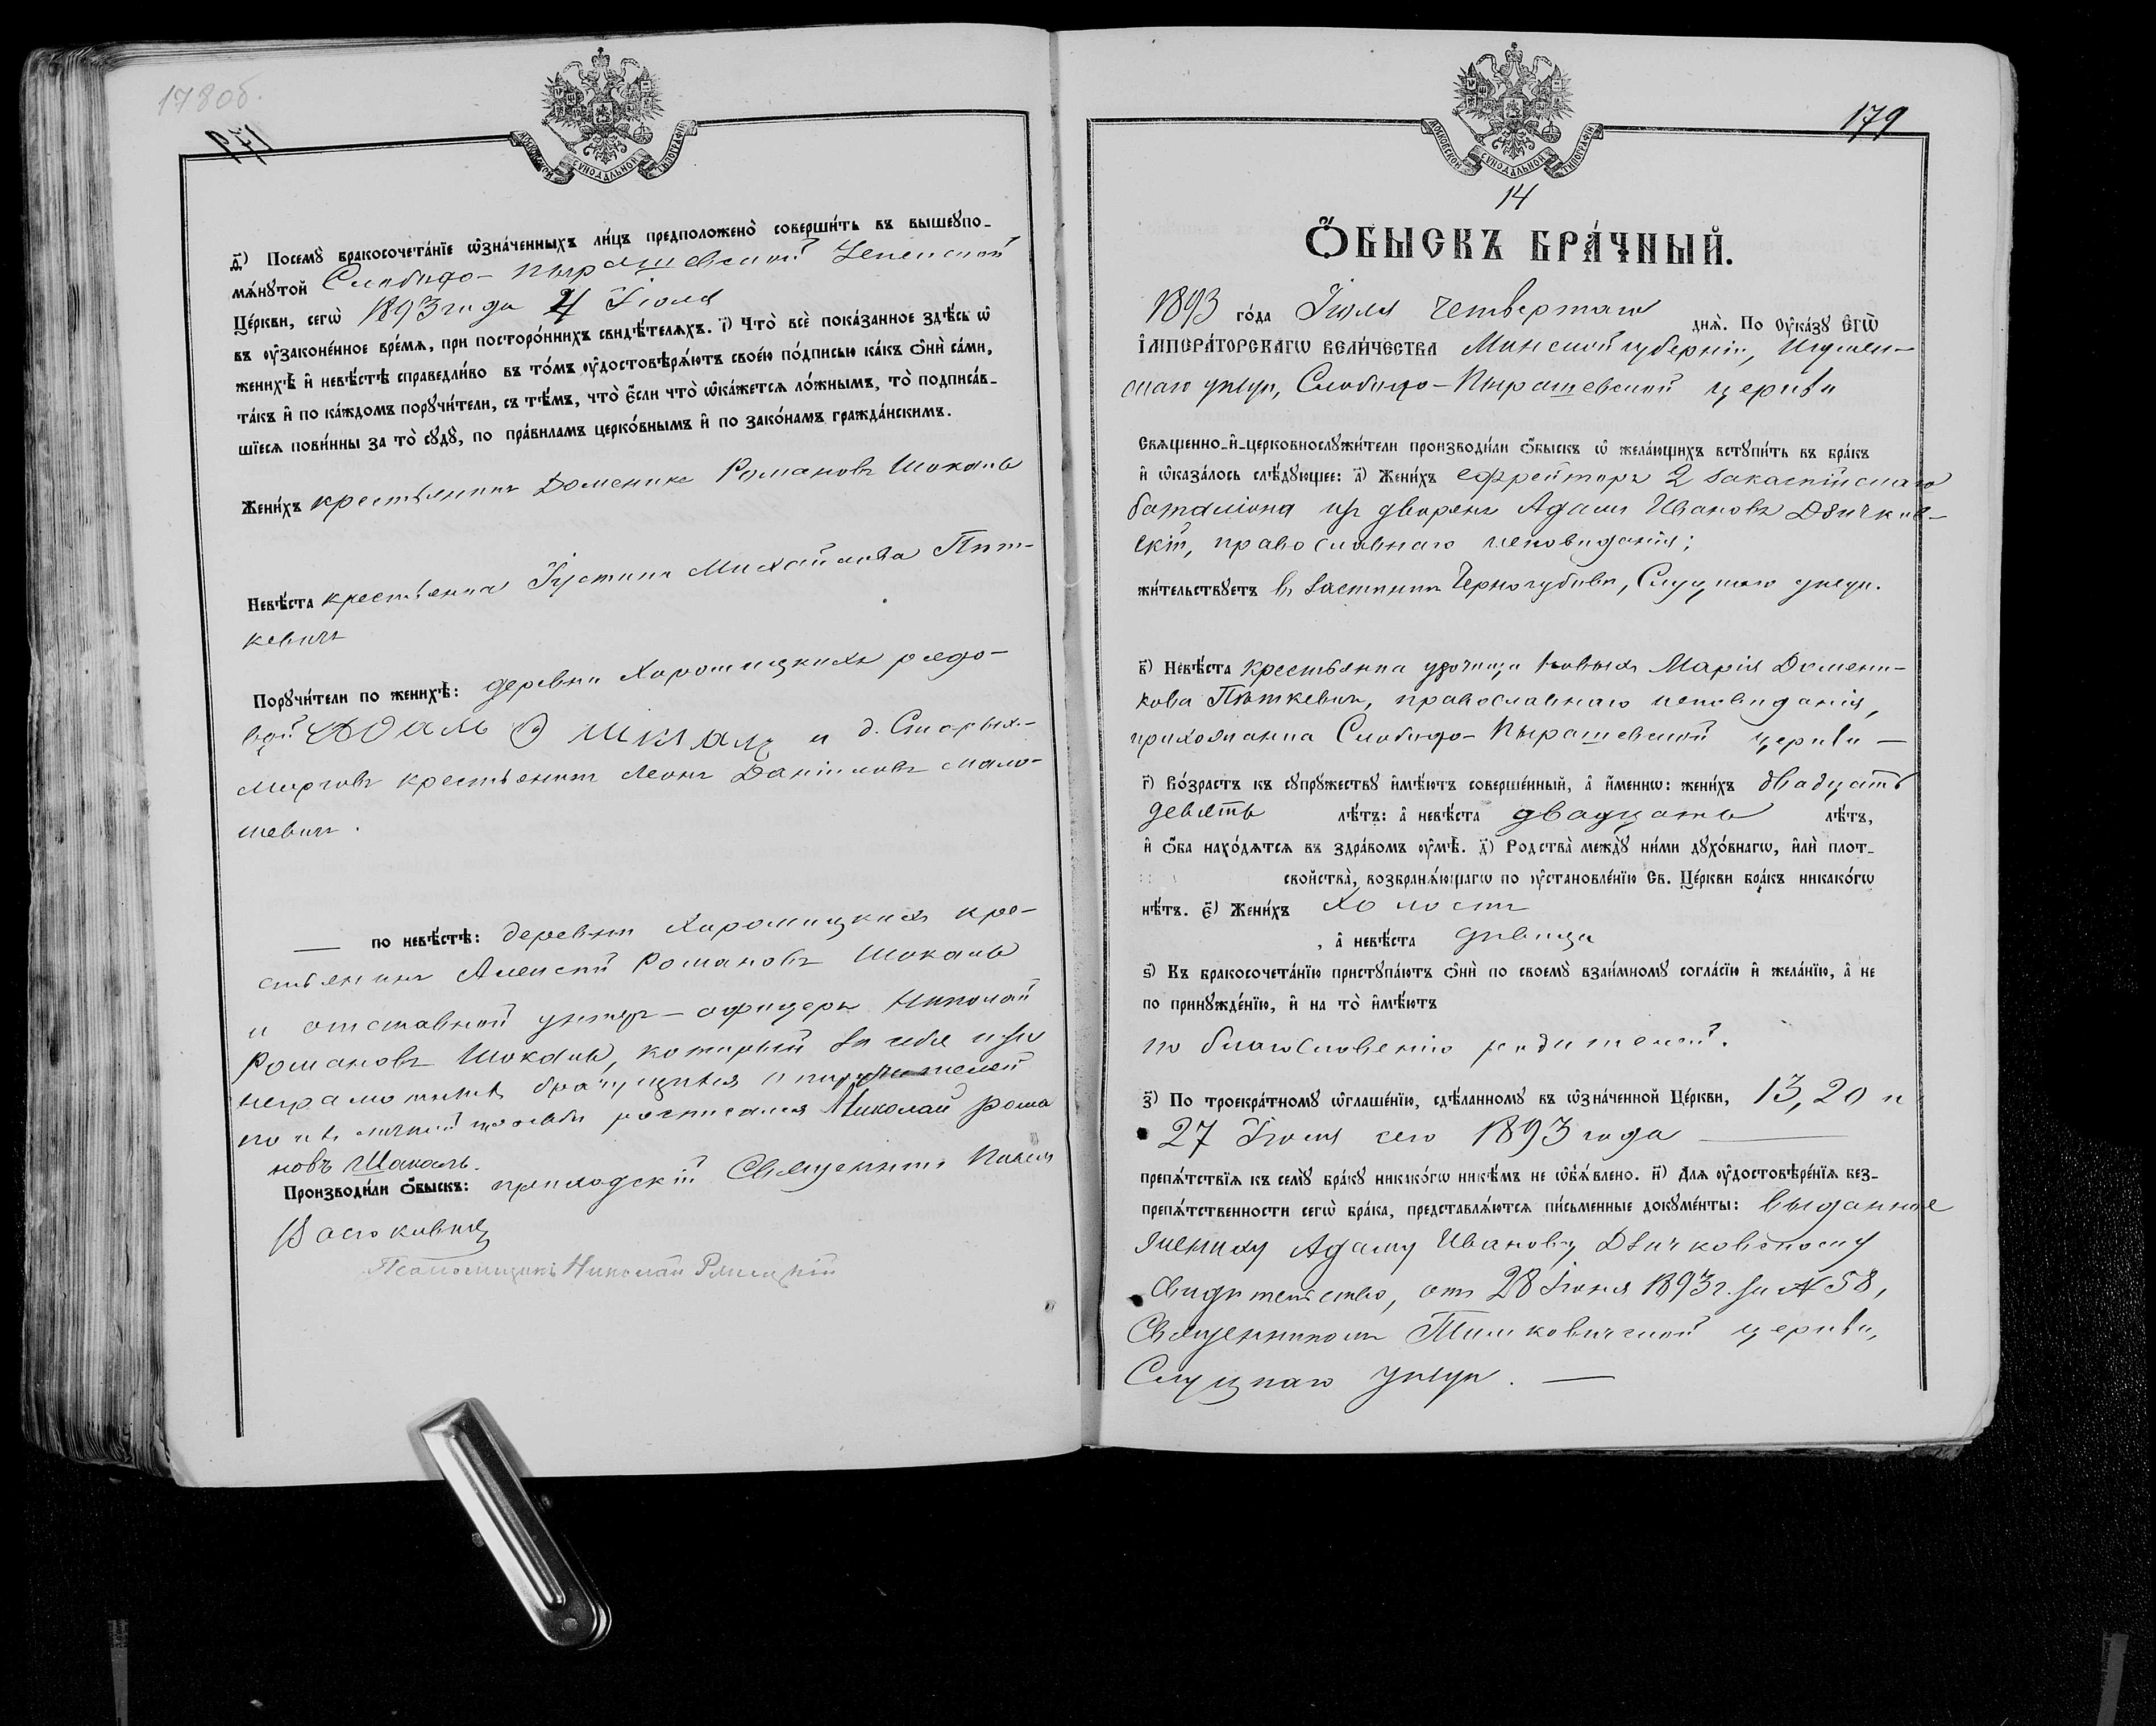 178об.
171
МОСКОВСКОЙ СѴНОДАЛЬНОЙ ТИПОГРАФІИ
д҃) Посемꙋ̀ бракосочета́нїе ѡ҆зна́ченныхъ ли́цъ предположено̀ соверши́ть въ вышеꙋпо-
мѧ́нꙋтой Слободо-Пырашевской Успенской
Це́ркви, сегѡ̀ 1893 года 4 Іюля
въ ᲂу҆законе́нное вре́мѧ, при посторо́ннихъ свидѣ́телѧхъ. і҃) Что̀ всѐ пока́занное здѣ́сь ѡ҆
женихѣ̀ и҆ невѣ́стѣ справедли́во въ то́мъ ᲂу҆достовѣрѧ́ютъ свое́ю по́дписью ка́къ ѻ҆нѝ са́ми,
та́къ и҆ по ка́ждомъ порꙋчи́тели, съ тѣ́мъ, что̀ є҆́сли что̀ ѡ҆ка́жется ло́жнымъ, то̀ подписа́в-
шїесѧ пови́нны за то̀ сꙋдꙋ̀, по пра́виламъ церко́внымъ и҆ по зако́намъ гражда́нскимъ.
Жени́хъ крестьянинъ Доменикъ Романовъ Шокаль
Невѣ́ста крестьянка Іустина Михайлова Пят-
кевичъ
Порꙋчи́тели по женихѣ̀: деревни Хоромицкихъ рядо-
вой Адамъ и д. Старыхъ-
Морговъ крестьянинъ Леонъ Даніиловъ Мало-
шевичъ.
— по невѣ́стѣ: деревни Хоромицкихъ кре-
стьянинъ Алексій Романовъ Шокаль
и отставной унтеръ-офицеръ Николай
Романовъ Шокаль, который за себя и за
неграмотныхъ брачущихся и поручителей
по ихъ личной просьбѣ росписался Николай Рома
новъ Шакаль.
Производи́ли ѻ҆́быскъ: приходскій Священникъ
Псаломщикъ Николай
179
МОСКОВСКОЙ СѴНОДАЛЬНОЙ ТИПОГРАФІИ
14
Ѻ҆́БЫСКЪ БРА́ЧНЫЙ.
1893 го́да Іюля четвертаго днѧ̀. По ᲂу҆ка́зꙋ Є҆гѡ̀
І҆мпера́торскагѡ вели́чества Минской губерніи, Игумен-
скаго уѣзда, Слободо-Пырашевской церкви
Свѧщенно-и҆-церковнослꙋжи́тели производи́ли ѻ҆́быскъ ѡ҆ жела́ющихъ встꙋпи́ть въ бра́къ
и҆ ѡ҆каза́лось слѣ́дꙋющее: а҃) Жени́хъ ефрейторъ 2 закаспійскаго
баталіона изъ дворянъ Адамъ Ивановъ Дзичков-
скій, православнаго исповѣданія;
жи́тельствꙋетъ въ застѣнкѣ Черногубовѣ, Слуцкаго уѣзда.
в҃) Невѣ́ста крестьянка урочища Новыхъ Марія Домени-
кова Пяткевичъ, православнаго исповѣданія,
прихожанка Слободо-Пырашевской церкви —
г҃) Во́зрастъ къ сꙋпрꙋ́жествꙋ и҆мѣ́ютъ соверше́нный, а҆ и҆́меннѡ: жени́хъ двадцать
девять лѣ́тъ: а҆ невѣ́ста двадцать лѣ́тъ,
и҆ ѻ҆́ба нахо́дятся въ здра́вомъ ᲂу҆мѣ̀. д҃) Родства̀ междꙋ̀ ни́ми дꙋхо́внагѡ, и҆лѝ плот-
свойства̀, возбранѧ́ющагѡ по ᲂу҆становле́нїю Св. Це́ркви бра́къ никако́гѡ
нѣ́тъ. є҃) Жени́хъ холостъ
, а҆ невѣ́ста дѣвица
ѕ҃) Къ бракосочета́нїю пристꙋпа́ютъ ѻ҆нѝ по своемꙋ̀ взаи́мномꙋ согла́сїю и҆ жела́нїю, а҆ не
по принꙋжде́нїю, и҆ на то̀ и҆мѣ́ютъ
по благословенію родителей.
з҃) По троекра́тномꙋ ѡ҆глаше́нїю, сдѣ́ланномꙋ въ ѡ҆зна́ченной Це́ркви, 13, 20 и
27 Іюня сего 1893 года —
препѧ́тствїѧ къ семꙋ̀ бра́кꙋ никако́гѡ никѣ́мъ не ѡ҆бъѧ́влено. и҃) Для ᲂу҆достовѣре́нїѧ без-
препѧ́тственности сегѡ̀ бра́ка, представлѧ́ются пи́сьменные докꙋме́нты: выданное
жениху Адаму Иванову Дзичковскому
свидѣтельство, отъ 28 Іюня 1893 г. за № 58,
Священникомъ Тимковичской церкви,
Слуцкаго уѣзда. —